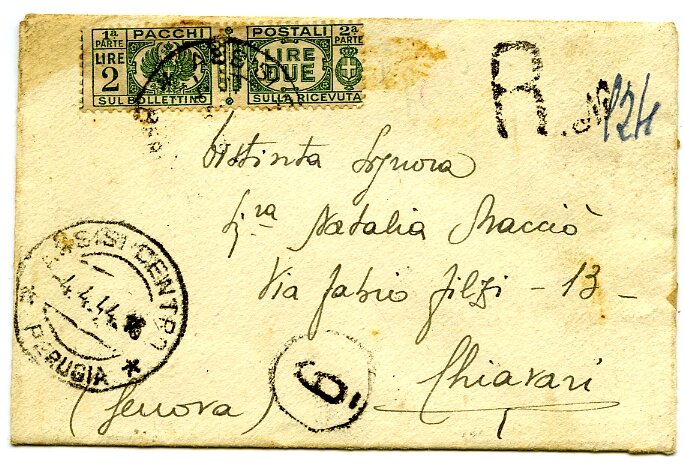 1ª PARTE PACCHI POSTALI 2ª PARTE
LIRE 2 LIRE DUE
SUL BOLLETTINO SULLA RICEVUTA
R. No 124
Distinta Signora
Sig.ra Natalia Macciò
Via Fabio Filzi - 13 -
ASSISI CENTRO
4.4.44.18
* PERUGIA *
6
Chiavari
(Genova)